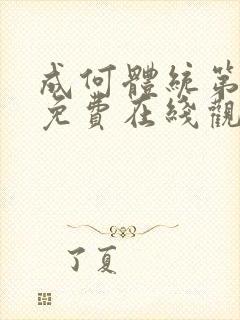 成何體統第
免費在綫觀
了夏